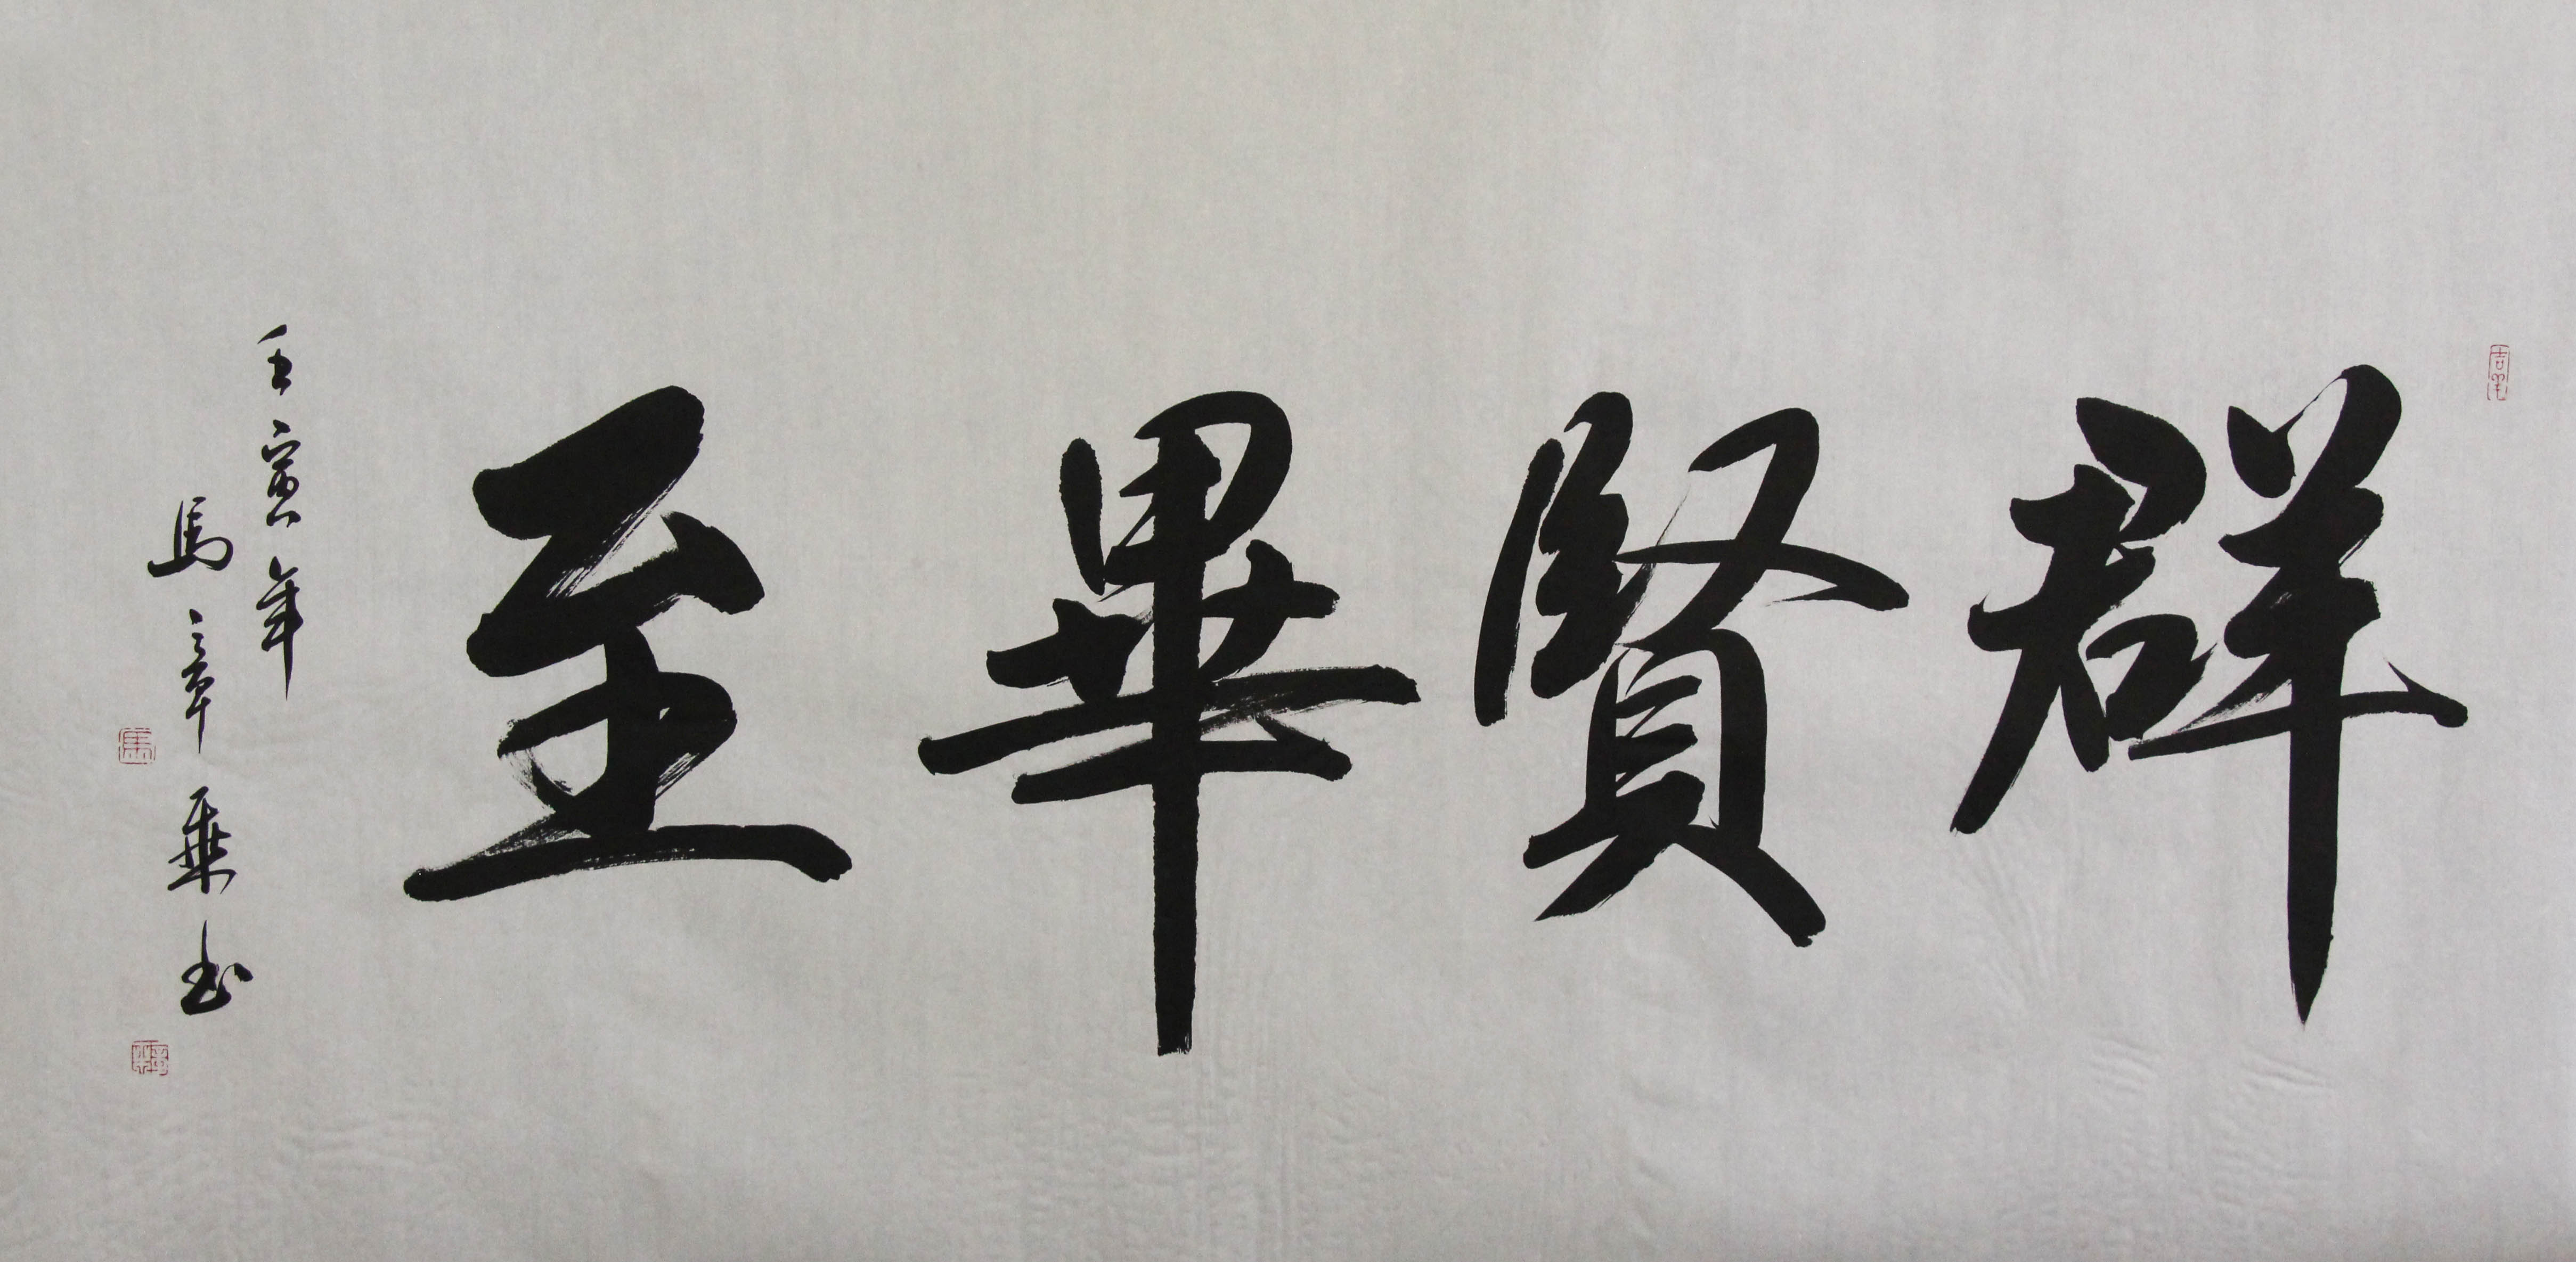 群賢畢至
壬寅年
馬章乘书